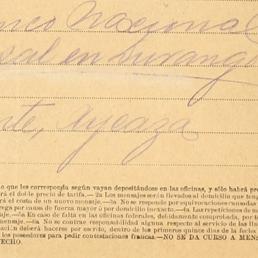 nco Nacional
sal en Durango
nte, Ayeaza
o que les corresponda según vayan depositándose en las oficinas, y sólo habrá pre
rá el doble precio de tarifa.—2a Los mensajes serán llevados al domicilio que teng
rá el costo de un nuevo mensaje.—3a No se responde por equivocaciones causadas
trega por causa de fuerza mayor ó por domicilio inexacto.—4a Las repeticiones de m
nsaje.—5a En caso de falta en las oficinas federales, debidamente comprobada, por t
el mensaje.—6a No se contrae responsabilidad alguna respecto al servicio de las lín
aci.n deberá hacerse por escrito, dentro de los primeros quince días de la fecha
los poseedores para pedir contestaciones francas.—NO SE DA CURSO A MENS
RECHO.